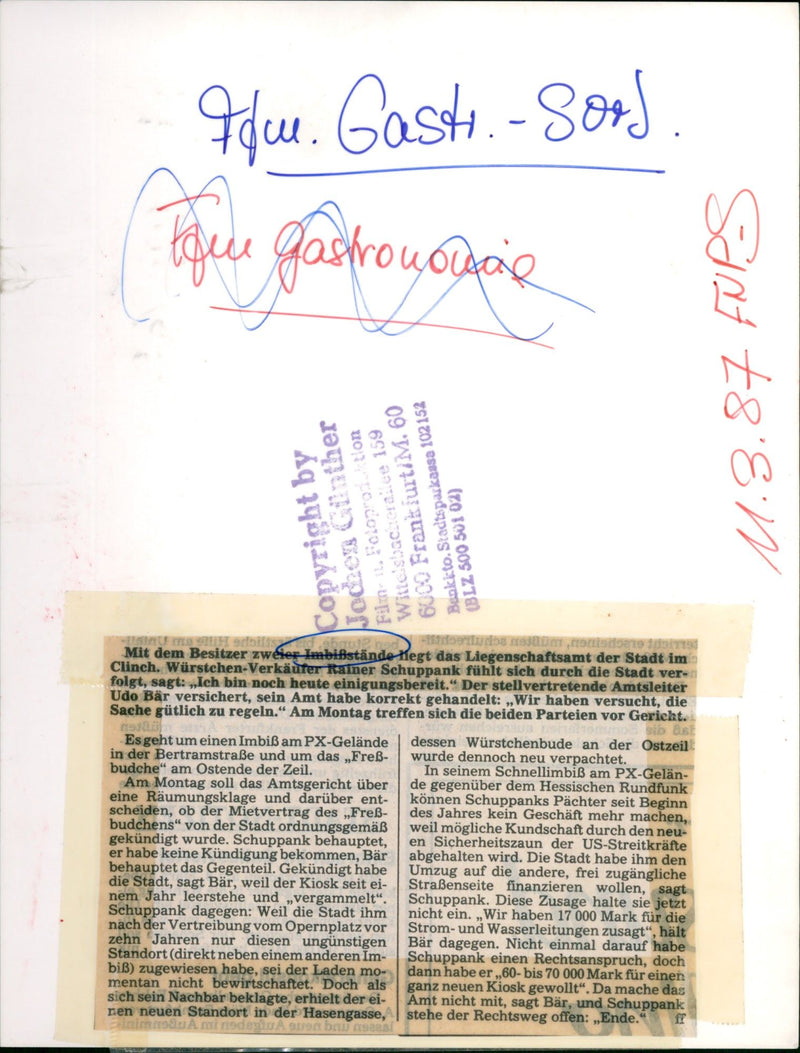 Ffm. Gastr. - Sors.
Ffm Gastronomie
11.3.87 FNP-S
Copyright by
Jochen Günther
Film- u. Fotoproduktion
Wittelsbacherallee 159
6000 Frankfurt/M. 60
Bankkto. Stadtsparkasse 102152
(BLZ 500 501 02)
Mit dem Besitzer zweier Imbißstände liegt das Liegenschaftsamt der Stadt im
Clinch. Würstchen-Verkäufer Rainer Schuppank fühlt sich durch die Stadt ver-
folgt, sagt: „Ich bin noch heute einigungsbereit.“ Der stellvertretende Amtsleiter
Udo Bär versichert, sein Amt habe korrekt gehandelt: „Wir haben versucht, die
Sache gütlich zu regeln.“ Am Montag treffen sich die beiden Parteien vor Gericht.
Es geht um einen Imbiß am PX-Gelände
in der Bertramstraße und um das „Freß-
budche“ am Ostende der Zeil.
Am Montag soll das Amtsgericht über
eine Räumungsklage und darüber ent-
scheiden, ob der Mietvertrag des „Freß-
budchens“ von der Stadt ordnungsgemäß
gekündigt wurde. Schuppank behauptet,
er habe keine Kündigung bekommen, Bär
behauptet das Gegenteil. Gekündigt habe
die Stadt, sagt Bär, weil der Kiosk seit ei-
nem Jahr leerstehe und „vergammelt“.
Schuppank dagegen: Weil die Stadt ihm
nach der Vertreibung vom Opernplatz vor
zehn Jahren nur diesen ungünstigen
Standort (direkt neben einem anderen Im-
biß) zugewiesen habe, sei der Laden mo-
mentan nicht bewirtschaftet. Doch als
sich sein Nachbar beklagte, erhielt der ei-
nen neuen Standort in der Hasengasse,
dessen Würstchenbude an der Ostzeil
wurde dennoch neu verpachtet.
In seinem Schnellimbiß am PX-Gelän-
de gegenüber dem Hessischen Rundfunk
können Schuppanks Pächter seit Beginn
des Jahres kein Geschäft mehr machen,
weil mögliche Kundschaft durch den neu-
en Sicherheitszaun der US-Streitkräfte
abgehalten wird. Die Stadt habe ihm den
Umzug auf die andere, frei zugängliche
Straßenseite finanzieren wollen, sagt
Schuppank. Diese Zusage halte sie jetzt
nicht ein. „Wir haben 17 000 Mark für die
Strom- und Wasserleitungen zusagt“, hält
Bär dagegen. Nicht einmal darauf habe
Schuppank einen Rechtsanspruch, doch
dann habe er „60- bis 70 000 Mark für einen
ganz neuen Kiosk gewollt“. Da mache das
Amt nicht mit, sagt Bär, und Schuppank
stehe der Rechtsweg offen: „Ende.“ ff